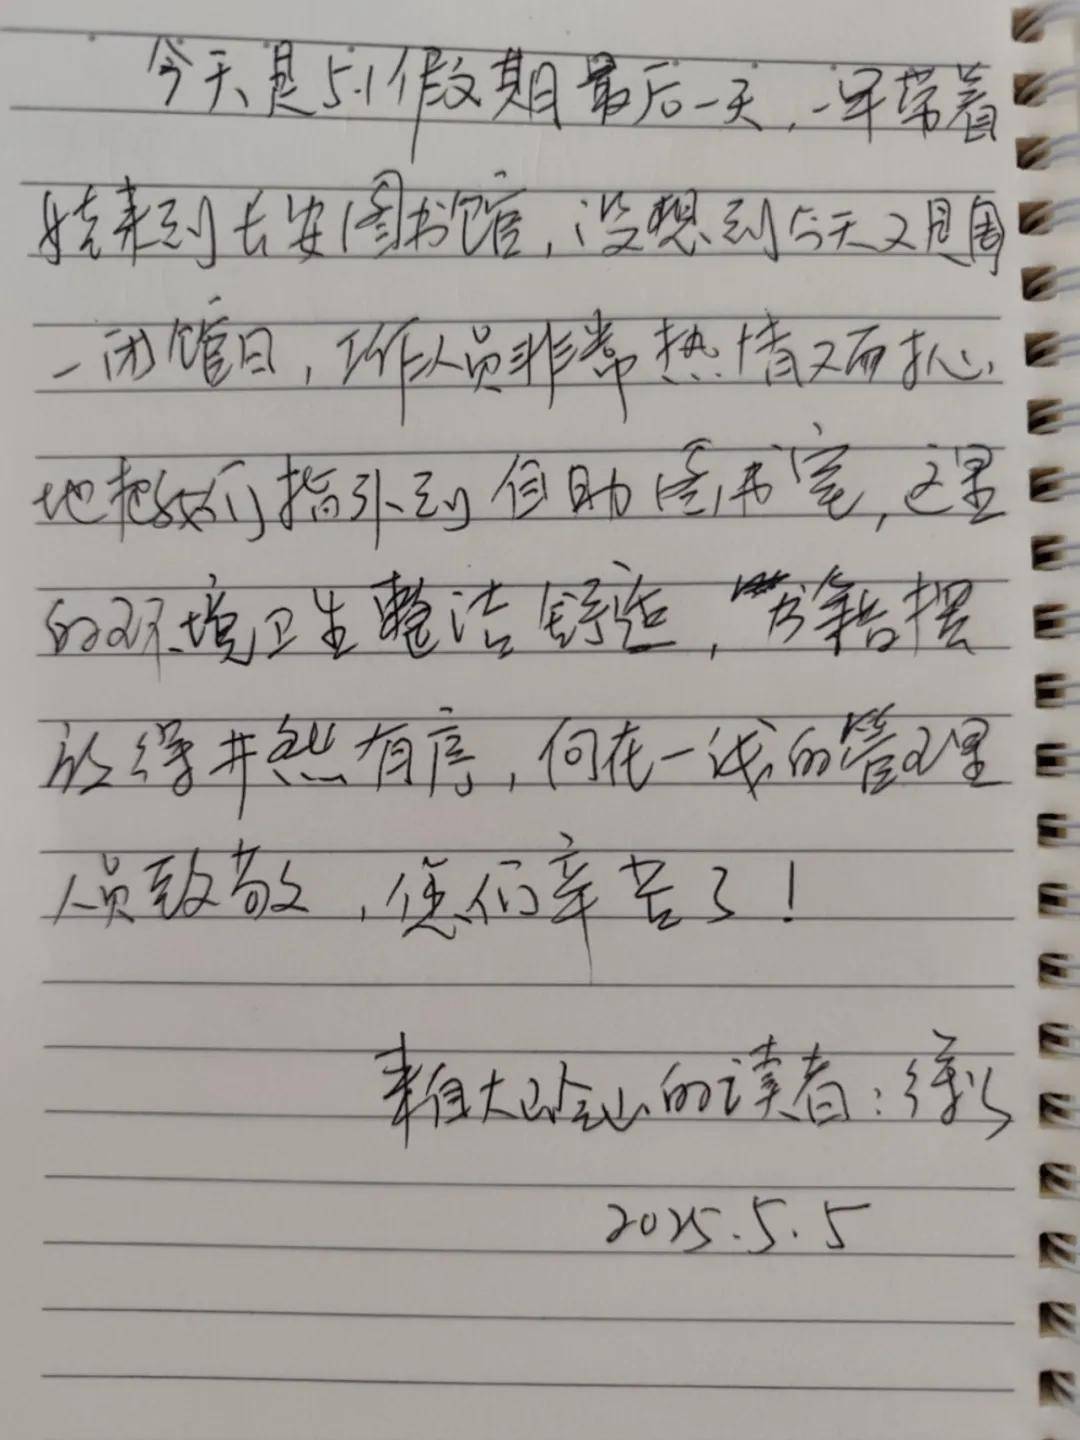 今天是5.1假期最后一天，一早带着
娃来到长安图书馆，没想到今天又是周
一闭馆日，工作人员非常热情又面
地把我们指引到自助图书室，这里
的环境卫生整洁舒适，书籍摆
放得井然有序，向在一线的管理
人员致敬，您们辛苦了！
来自大岭山的读者：
2025.5.5